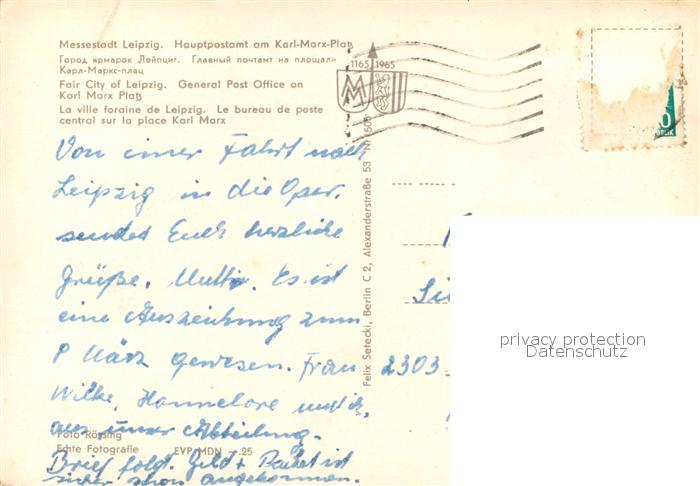 Messestadt Leipzig. Hauptpostamt am Karl-Marx-Platz
Город ярмарок Лейпциг. Главный почтамт на площали
Карл-Маркс-плац
Fair City of Leipzig. General Post Office on
Karl Marx Platz
La ville foraine de Leipzig. Le bureau de poste
central sur la place Karl Marx
1165 1965
M
Von einer Fahrt nach
Leipzig in die Oper
sendet Euch herzliche
Grüße. Mutti. Es ist
eine Auszeichnung zum
8 März gewesen. Frau
Wilke, Hannelore und ich,
aus unser Abteilung.
Brief folgt. Geld + Paket ist
sicher schon angekommen.
Foto Rössing
Echte Fotografie EVP MDN -.25
Felix Setecki, Berlin C 2, Alexanderstraße 53
2303
privacy protection
Datenschutz